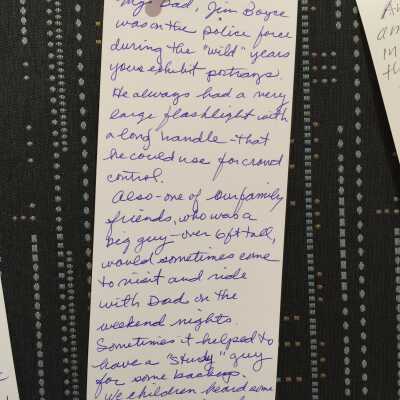 "My Dad, Jim Boyce
was on the police force
during the "wild" years
your exhibit portrays.
He always had a very
large flashlight with
a long handle - that
he could use for crowd
control.
Also - one of our family
friends, who was a
big guy - over 6ft tall,
would sometimes come
to visit and ride
with Dad on the
weekend nights
Sometimes it helped to
have a "sturdy" guy
for some backup.
We children heard some